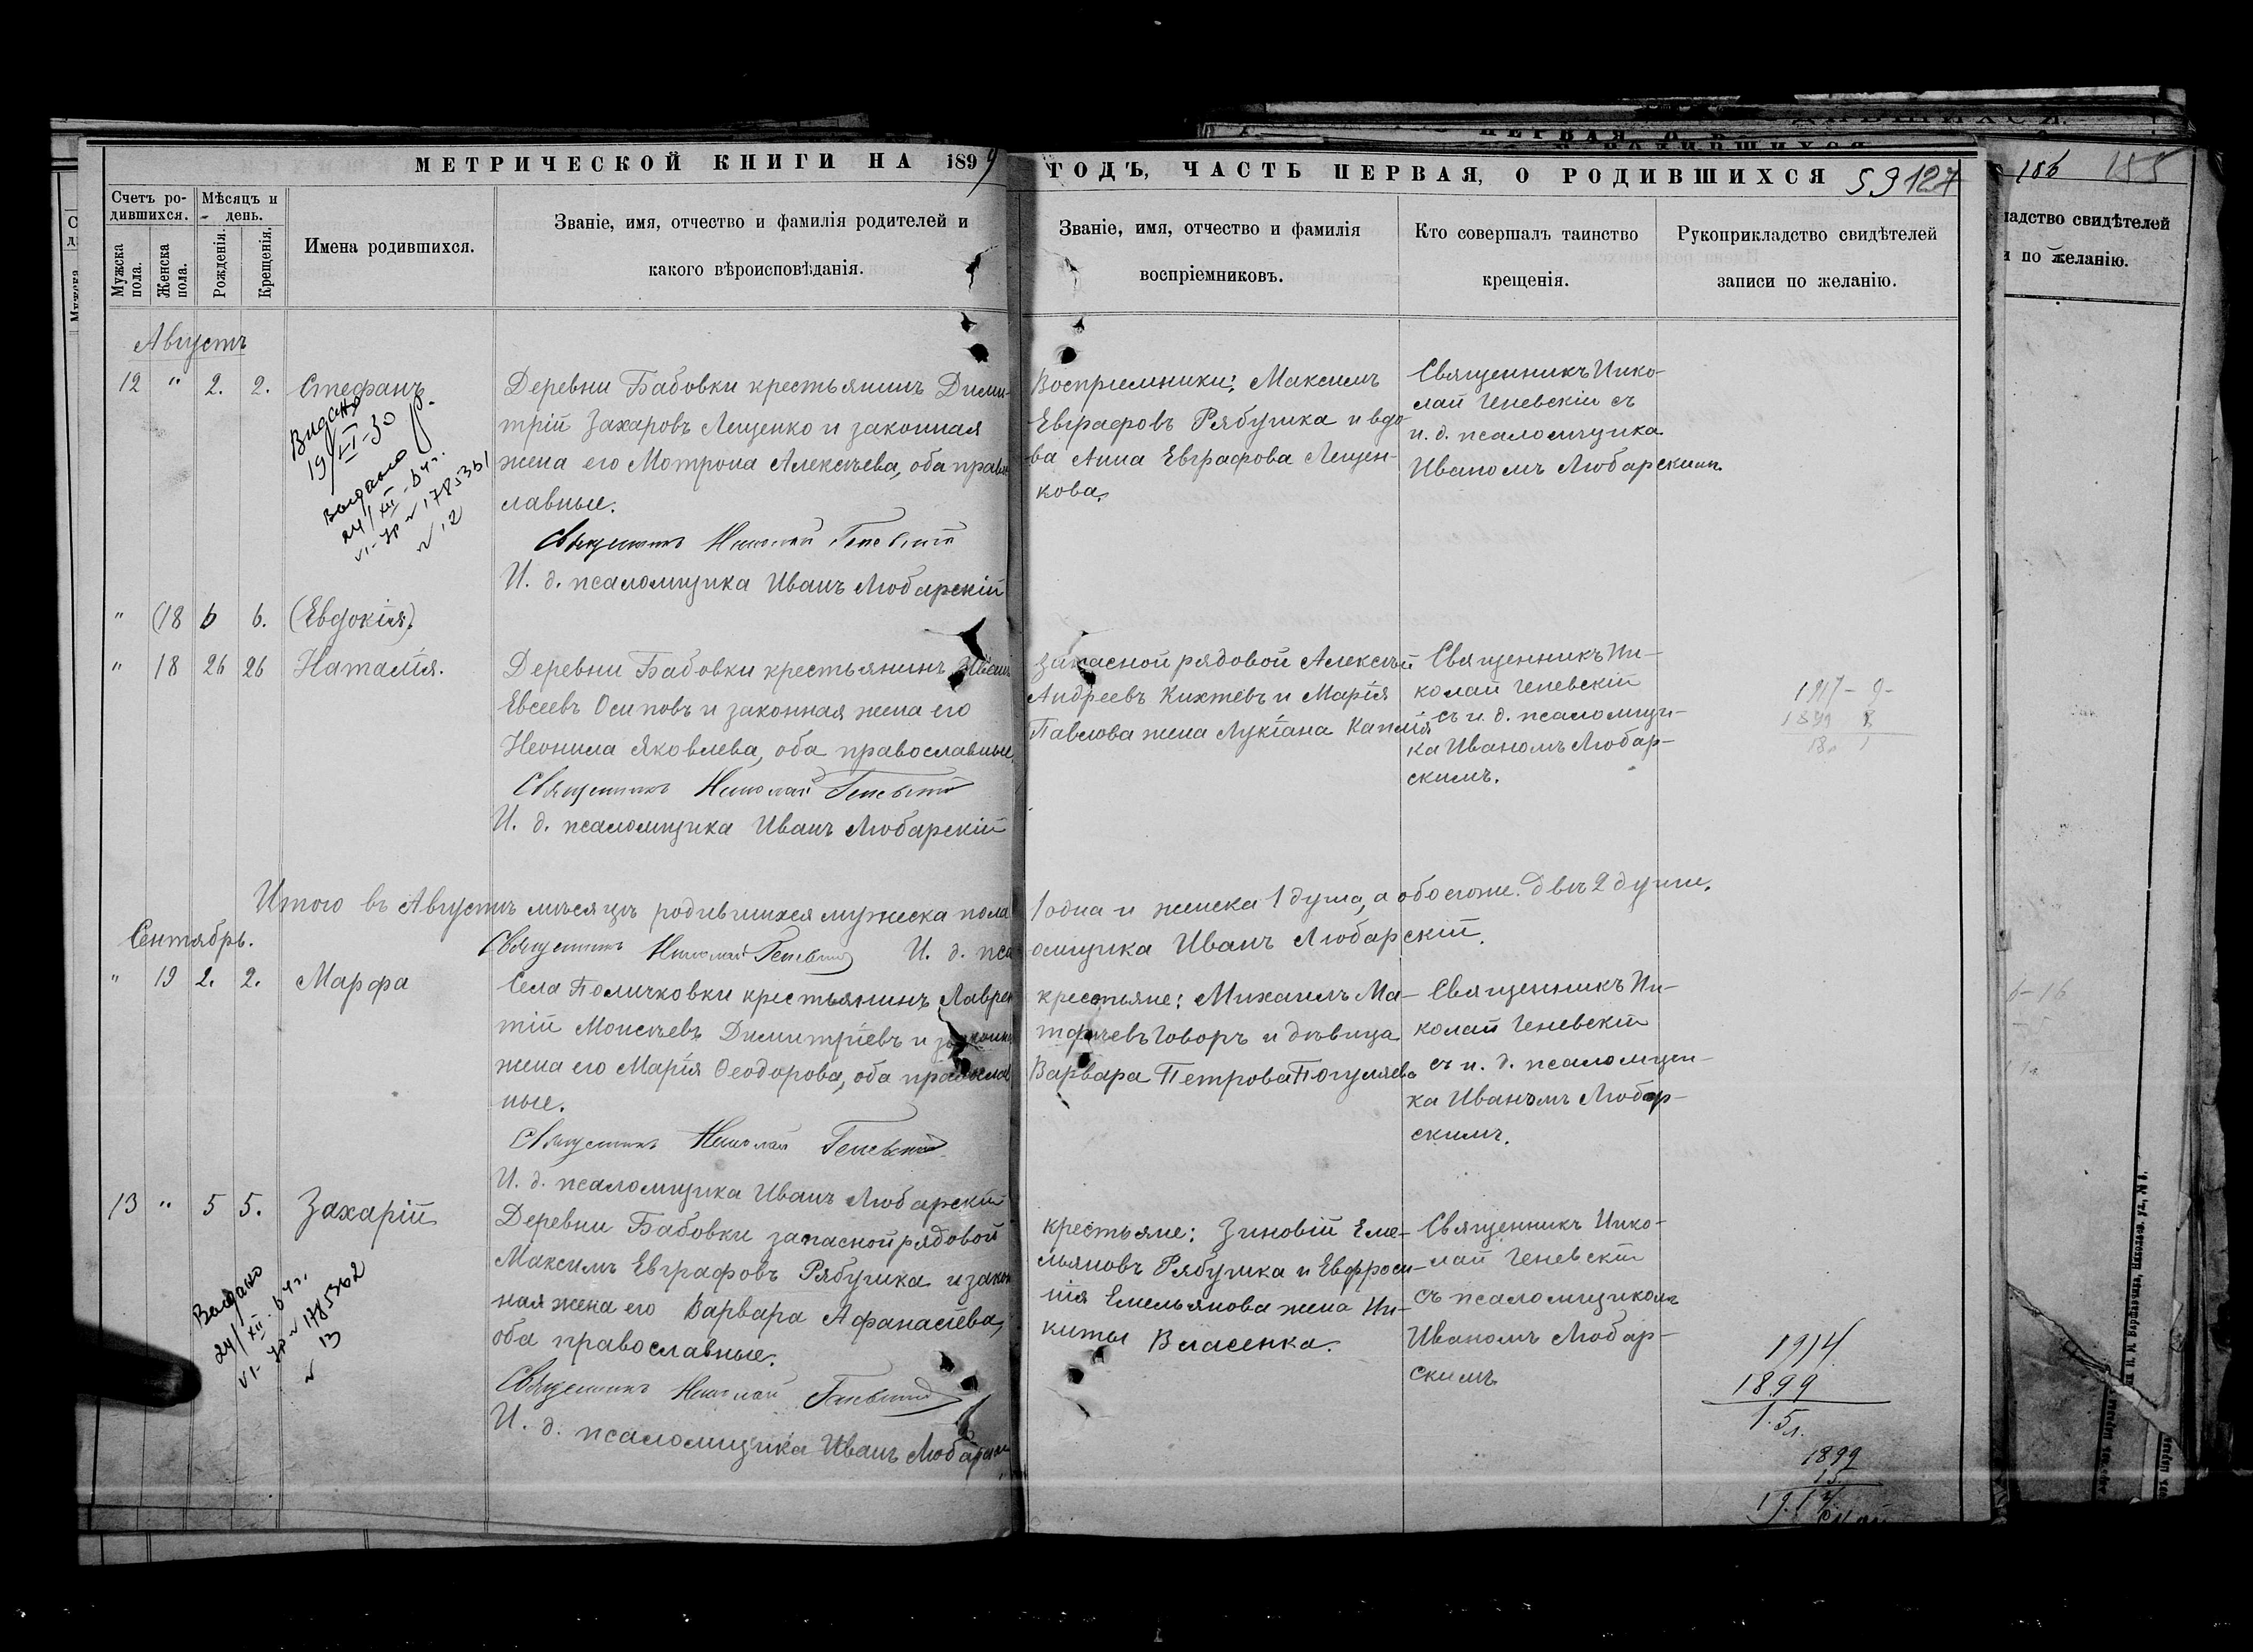 МЕТРИЧЕСКОЙ КНИГИ НА 1899
ГОДЪ, ЧАСТЬ ПЕРВАЯ, О РОДИВШИХСЯ
59 127
Счетъ ро-
дившихся.
Мѣсяцъ и
день.
Мужска
пола.
Женска
пола.
Рожденія.
Крещенія.
Имена родившихся.
Званіе, имя, отчество и фамилія родителей и
какого вѣроисповѣданія.
Званіе, имя, отчество и фамилія
воспріемниковъ.
Кто совершалъ таинство
крещенія.
Рукоприкладство свидѣтелей
записи по желанію.
Августъ
12 " 2. 2. Стефанъ
Видано
19/VI-30 р.
Выдано
24/XII-64г.
VI-УР № 1785361
№ 12
Деревни Бабовки крестьянинъ Дими-
трій Захаровъ Лещенко и законная
жена его Мотрона Алексѣева, оба право
славные.
Священникъ Николай Геневскій
И. д. псаломщика Иванъ Любарскій
Воспріемники: Максимъ
Евграфовъ Рябушка и вдо-
ва Анна Евграфова Лещен-
кова.
Священникъ Нико-
лай Геневскій съ
и. д. псаломщика
Иваномъ Любарскимъ.
" (18 6 6. (Евдокія).
" 18 26 26 Наталія.
Деревни Бабовки крестьянинъ Иванъ
Евсеевъ Осиповъ и законная жена его
Неонила Яковлева, оба православные.
Священникъ Николай Геневскій
И. д. псаломщика Иванъ Любарскій
Запасной рядовой Алексѣй
Андреевъ Кихтевъ и Марія
Павлова жена Лукіана
Священникъ Ни-
колай Геневскій
съ и. д. псаломщи-
ка Иваномъ Любар-
скимъ.
Итого въ Августѣ мѣсяцѣ родившихся мужеска пола 1 одна и женска 1 душа, а обоегоже. двѣ 2 души.
Священникъ Николай Геневскій И. д. псаломщика Иванъ Любарскій.
Сентябрь.
" 19 2. 2. Марфа
Села Поличковки крестьянинъ Лаврен
тій Моисѣевъ Димитріевъ и законная
жена его Марія Ѳеодорова, оба православ
ные.
Священникъ Николай Геневскій
И. д. псаломщика Иванъ Любарскій
крестьяне: Михаилъ Ма-
тфѣевъ Говоръ и дѣвица
Варвара Петрова Погуляева
Священникъ Ни-
колай Геневскій
съ и. д. псаломщи-
ка Иваномъ Любар-
скимъ.
13 " 5 5. Захарій
Выдано
24/XII-64г.
VI-УР № 1785362
№ 13
Деревни Бабовки запасной рядовой
Максимъ Евграфовъ Рябушка и закон
ная жена его Варвара Афанасіева,
оба православные.
Священникъ Николай Геневскій
И. д. псаломщика Иванъ Любарскій
крестьяне: Зиновій Еме-
льяновъ Рябушка и Евфроси-
нія Емельянова жена Ни-
киты Власенка.
Священникъ Нико-
лай Геневскій
съ псаломщикомъ
Иваномъ Любар-
скимъ
1914
1899
15л.
1899
15
1914
186 155
ладство свидѣтелей
и по желанію.